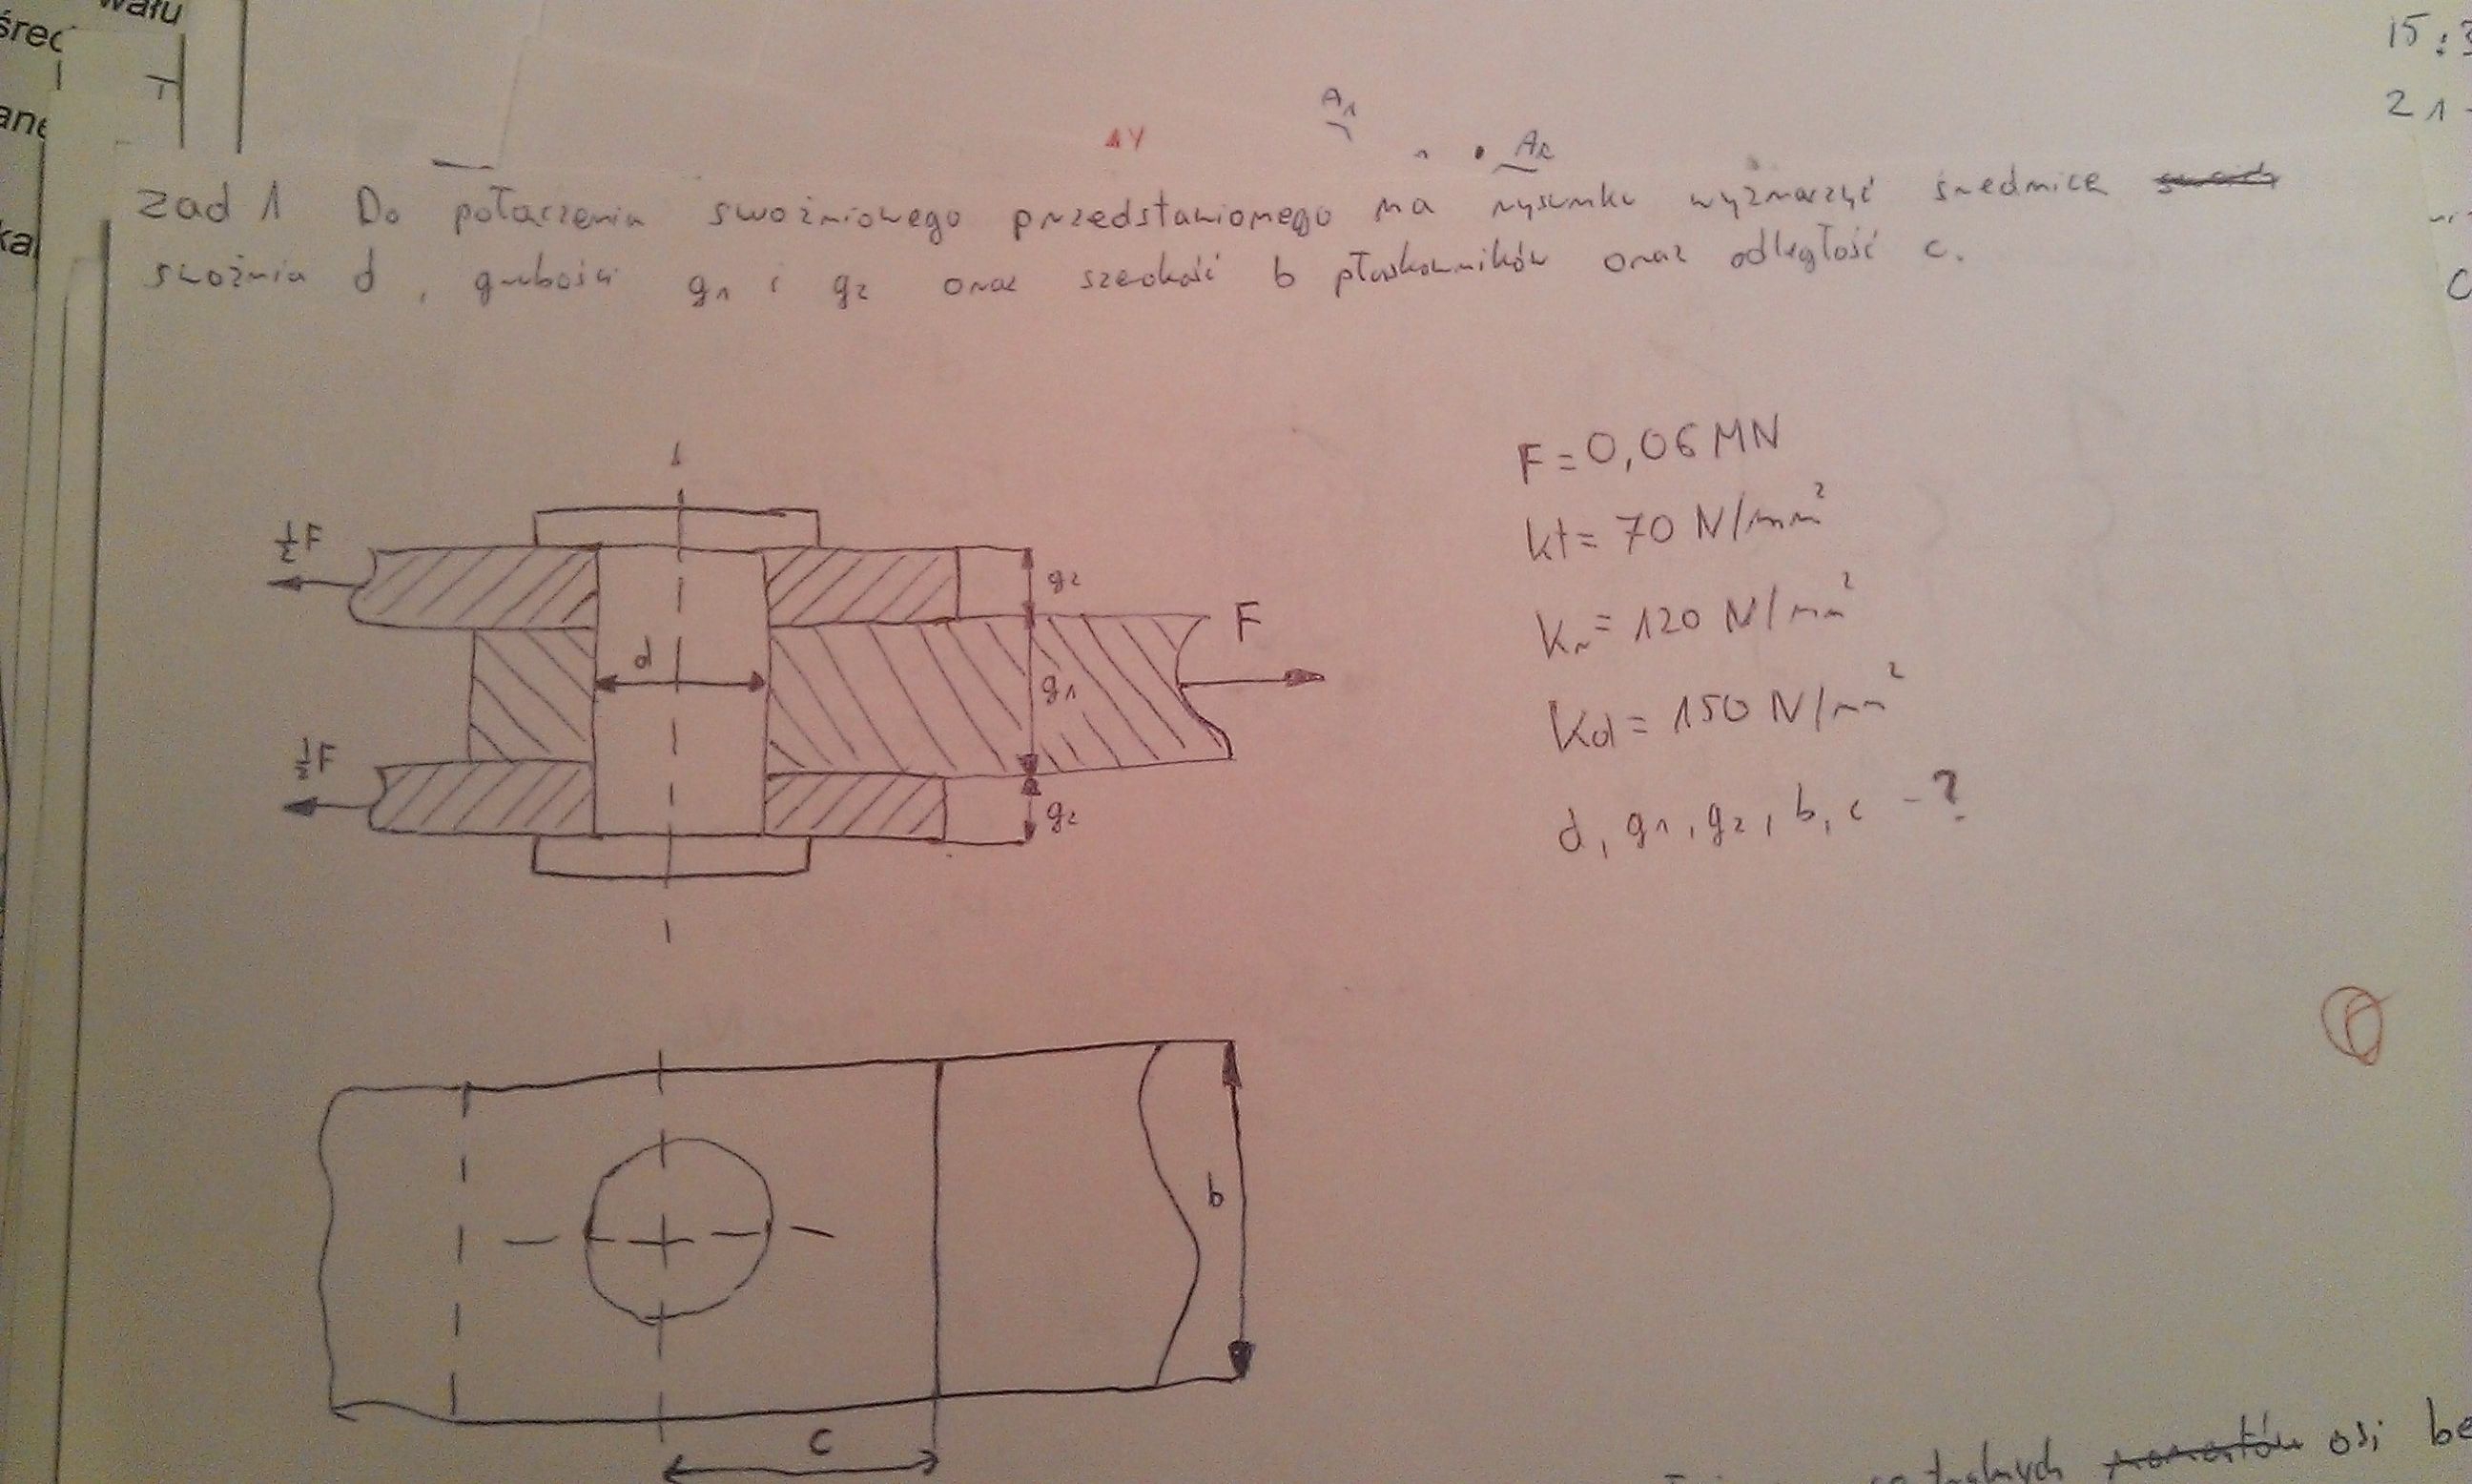 wału
śred
15:3
21-
A1
ΔY
A2
zad 1 Do połączenia sworzniowego przedstawionego na rysunku wyznaczyć średnicę
swożnia d, grubości g1 i g2 oraz szerokość b płaskowników oraz odległość c.
F=0,06 MN
kt= 70 N/mm²
kr= 120 N/mm²
kd= 150 N/mm²
d, g1, g2, b, c - ?
½F
g2
d
g1
F
½F
g2
b
c
osi be